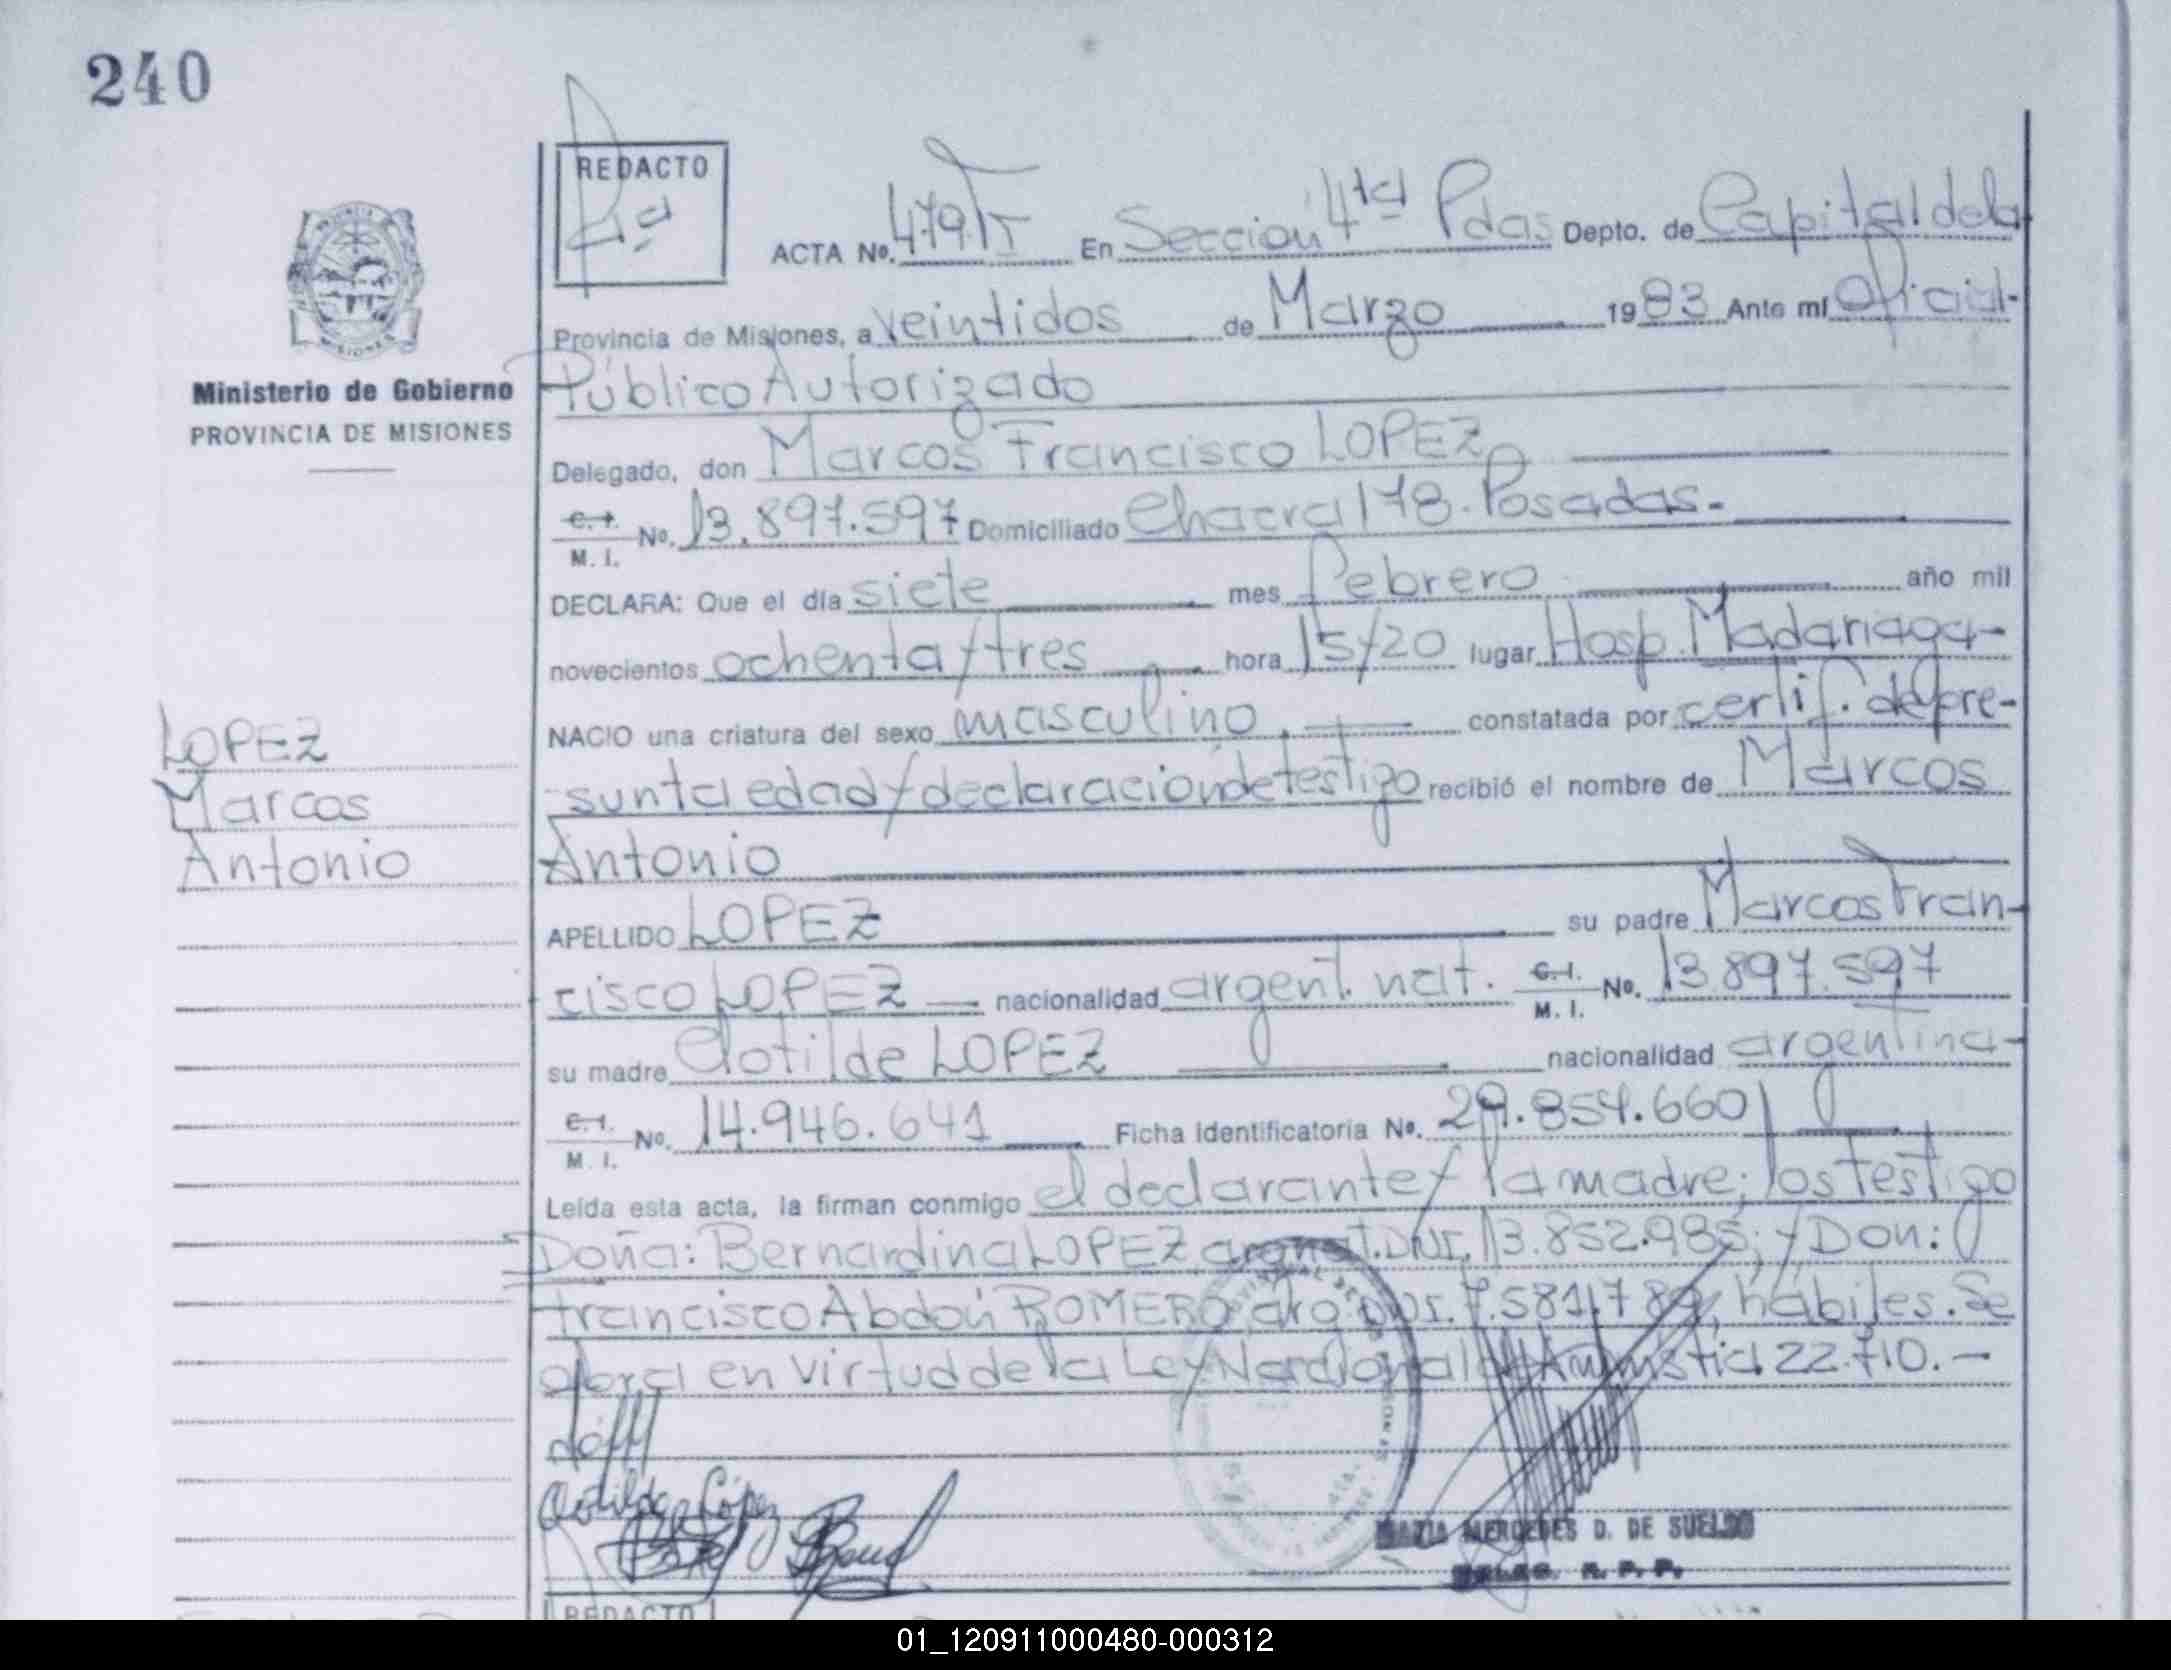 240
REDACTO
4ª
ACTA Nº. 479 T I En Sección 4ta Pdas Depto. de Capital de la
Provincia de Misiones, a veintidos de Marzo 1983 Ante mí Oficial-
Ministerio de Gobierno
PROVINCIA DE MISIONES
Público Autorizado
Delegado, don Marcos Francisco LOPEZ
C. I. M. I. No. 13.897.597 Domiciliado Chacra 178. Posadas.-
DECLARA: Que el día siete mes febrero año mil
novecientos ochenta y tres hora 15 y 20 lugar Hosp. Madariaga-
NACIO una criatura del sexo masculino. constatada por certif. de pre-
sunta edad y declaración de testigo recibió el nombre de Marcos
Antonio
LOPEZ
Marcos
Antonio
APELLIDO LOPEZ su padre Marcos Fran-
cisco LOPEZ nacionalidad argent. nat. C. I. M. I. No. 13.897.597
su madre Clotilde LOPEZ nacionalidad argentina-
C. I. M. I. No. 14.946.641 Ficha identificatoria No. 29.854.660
Leída esta acta, la firman conmigo el declarante y la madre; los testigo
Doña: Bernardina LOPEZ arg nat. DNI. 13.852.985; y Don:
Francisco Abdón ROMERO, arg. DNI. 7.581.789, hábiles. Se
labra en virtud de la Ley Nacional de Amnistia 22.710.-
Clotilde López
MARIA MERCEDES D. DE SUELDO
DELEG. R. P. P.
REDACTO
01_120911000480-000312